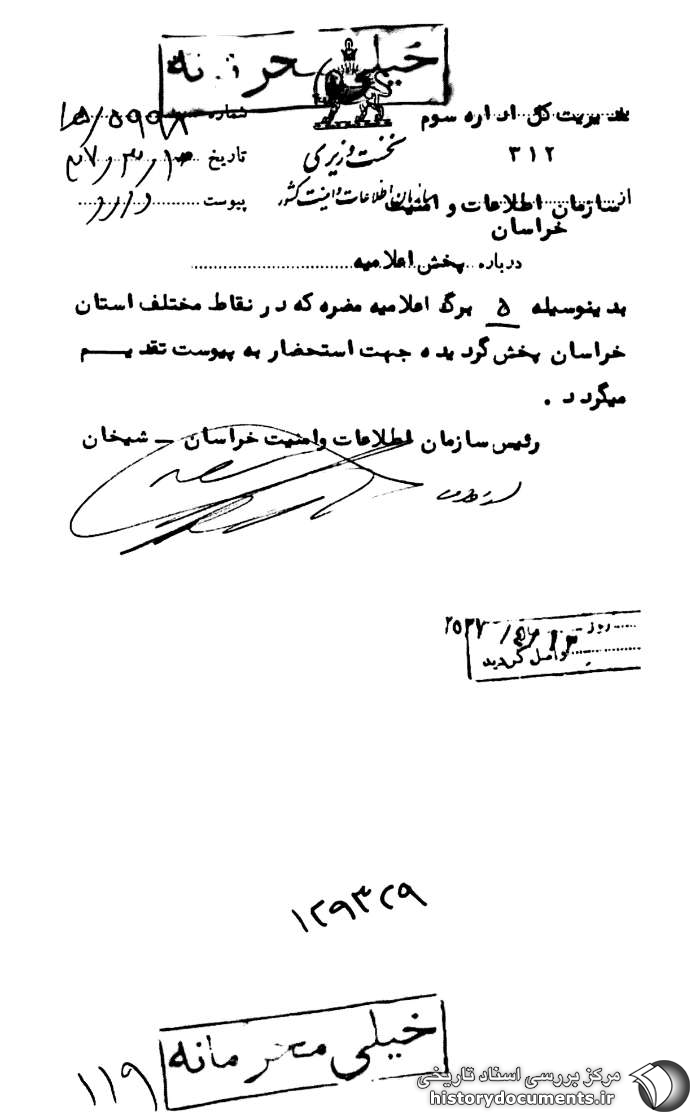 خیلی محرمانه
مدیریت کل اداره سوم
۳۱۲
شماره ۱۵/۵۹۹۸
نخست وزیری
تاریخ
سازمان اطلاعات و امنیت کشور
پیوست دارد
از سازمان اطلاعات و امنیت
خراسان
درباره پخش اعلامیه
بدینوسیله ۵ برگ اعلامیه مضره که در نقاط مختلف استان
خراسان پخش گردیده جهت استحضار به پیوست تقدیم
میگردد .
رئیس سازمان اطلاعات و امنیت خراسان – شیخان
روز
۲۵۳۷
واصل گردید
۱۲۹۳۲۹
خیلی محرمانه
۱۱۹
مرکز بررسی اسناد تاریخی
historydocuments.ir